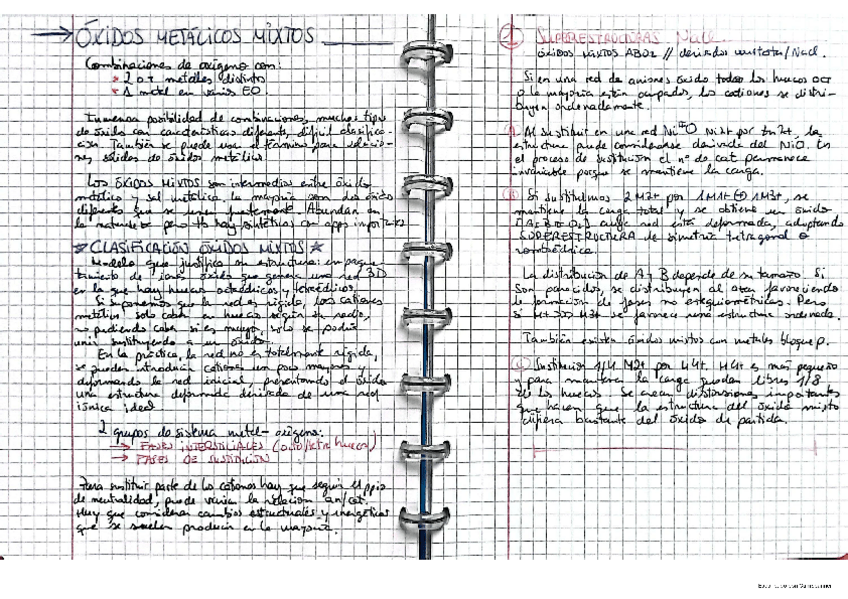 → ÓXIDOS METÁLICOS MIXTOS
Combinaciones de oxígeno con:
* 2 o + metales distintos
* 1 metal en varios EO.
Inmensa posibilidad de combinaciones, muchos tipos
de óxido con características diferentes, difícil clasifica-
ción. También se puede usar el término para solucio-
nes sólidas de óxidos metálicos.
Los ÓXIDOS MIXTOS son intermedios entre óxido
metálico y sal metálica, la mayoría son dos óxidos
diferentes que se unen Abundan en
la naturaleza pero tb hay sintéticos con apps importantes
☆ CLASIFICACIÓN ÓXIDOS MIXTOS ☆
Modelo que justifica su estructura: empaque-
tamiento de iones óxido que genera una red 3D
en la que hay huecos octaédricos y tetraédricos.
Si suponemos que la red es rígida, los cationes
metálicos solo caben en huecos según su radio,
no pudiendo caber si es mayor, solo se podría
unir sustituyendo a un óxido.
En la práctica, la red no es totalmente rígida,
se pueden introducir cationes un poco mayores y
deformando la red inicial, presentando el óxido
una estructura deformada derivada de una red
iónica ideal.
2 grupos de sistema metal-oxígeno:
→ FASES INTERSTICIALES (octa/tetra huecos)
→ FASES DE SUSTITUCIÓN
Para sustituir parte de los cationes hay que seguir el ppio
de neutralidad, puede variar la relación an/cat.
Hay que considerar cambios estructurales y energéticos
que se suelen producir en la mayoría.
1 SUPERESTRUCTURAS NaCl
ÓXIDOS MIXTOS ABO2 // derivados wustita/NaCl.
Si en una red de aniones óxido todos los huecos oct
o la mayoría están ocupados, los cationes se distri-
buyen ordenadamente.
Al sustituir en una red Ni2+O Ni2+ por M2+, la
estructura puede considerarse derivada del NiO. En
el proceso de sustitución el nº de cat permanece
invariable porque se mantiene la carga.
Si sustituimos 2 M2+ por 1M1+ 1M3+, se
mantiene la carga total y se obtiene un óxido
cuya red está deformada, adoptando
SUPERESTRUCTURA de simetría tetragonal o
romboédrica.
La distribución de A y B depende de su tamaño. Si
son parecidos, se distribuyen al azar favoreciendo
la formación de fases no estequiométricas. Pero
si M+ >> M3+ se favorece una estructura ordenada.
También existen óxidos mixtos con metales bloque p.
Sustitución 1/4 M2+ por M4+. M4+ es más pequeño
y para mantener la carga quedan libres 1/8
de los huecos. Se crean distorsiones importantes
que hacen que la estructura del óxido mixto
difiera bastante del óxido de partida.